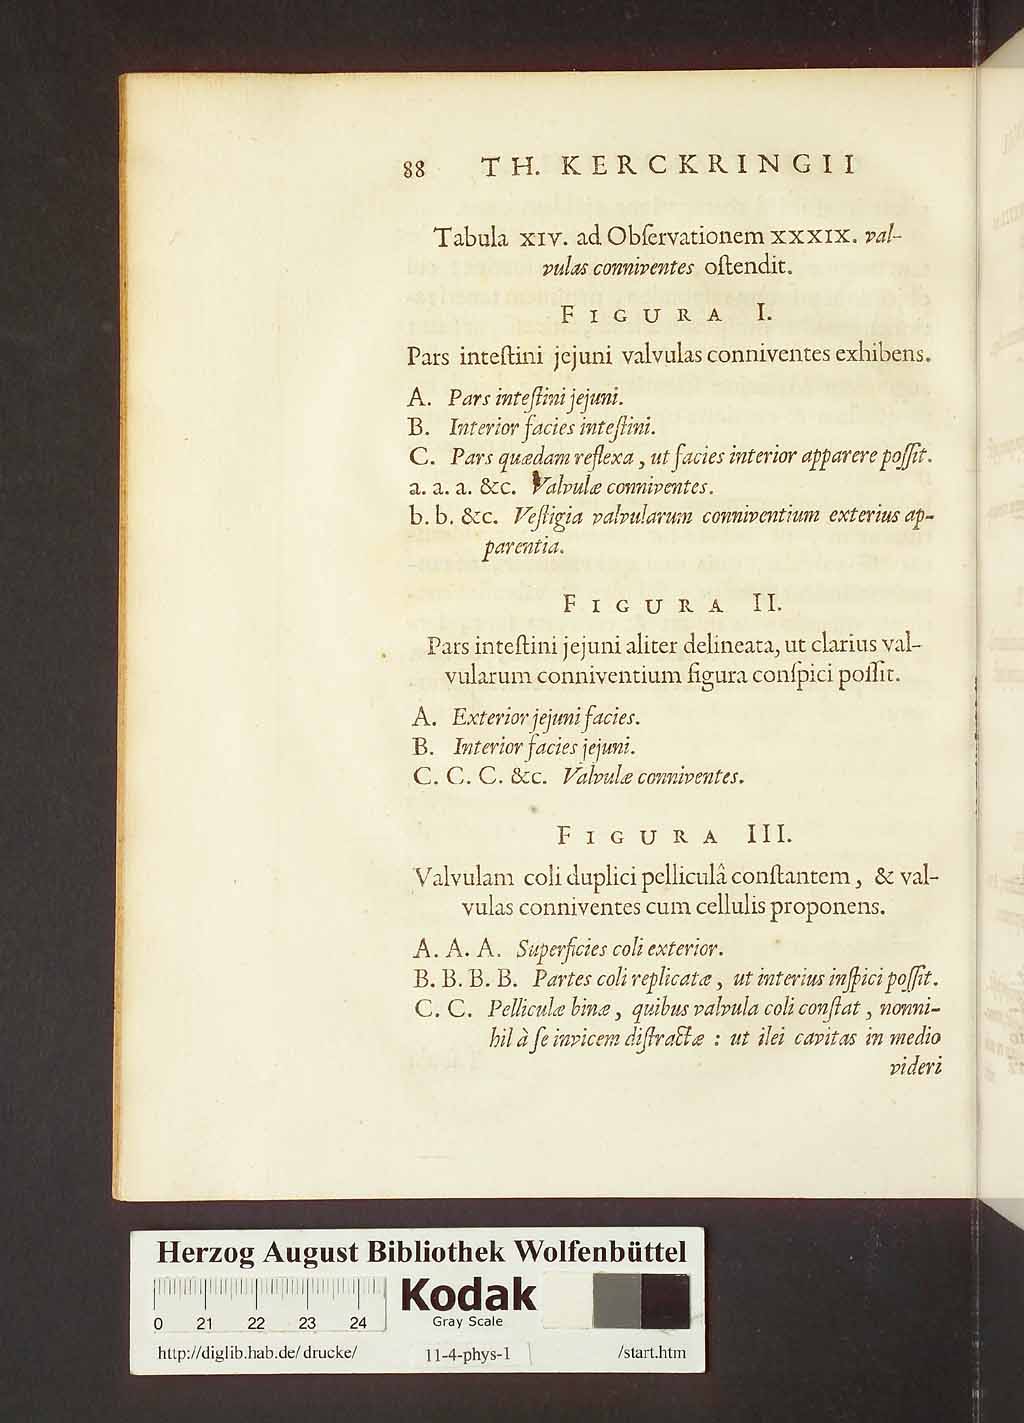 88 TH. KERCKRINGII
Tabula XIV. ad Obſervationem XXXIX. val-
vulas conniventes oſtendit.
FIGURA I.
Pars inteſtini jejuni valvulas conniventes exhibens.
A. Pars inteſtini jejuni.
B. Interior facies inteſtini.
C. Pars quædam reflexa, ut facies interior apparere poſſit.
a. a. a. &c. Valvulæ conniventes.
b. b. &c. Veſtigia valvularum conniventium exterius ap-
parentia.
FIGURA II.
Pars inteſtini jejuni aliter delineata, ut clarius val-
vularum conniventium figura conſpici poſſit.
A. Exterior jejuni facies.
B. Interior facies jejuni.
C. C. C. &c. Valvulæ conniventes.
FIGURA III.
Valvulam coli duplici pelliculâ conſtantem, & val-
vulas conniventes cum cellulis proponens.
A. A. A. Superficies coli exterior.
B. B. B. B. Partes coli replicatæ, ut interius inſpici poſſit.
C. C. Pelliculæ binæ, quibus valvula coli conſtat, nonni-
hil à ſe invicem diſtractæ : ut ilei cavitas in medio
videri
Herzog August Bibliothek Wolfenbüttel
0 21 22 23 24
Kodak
Gray Scale
http://diglib.hab.de/drucke/ 11-4-phys-1 /start.htm